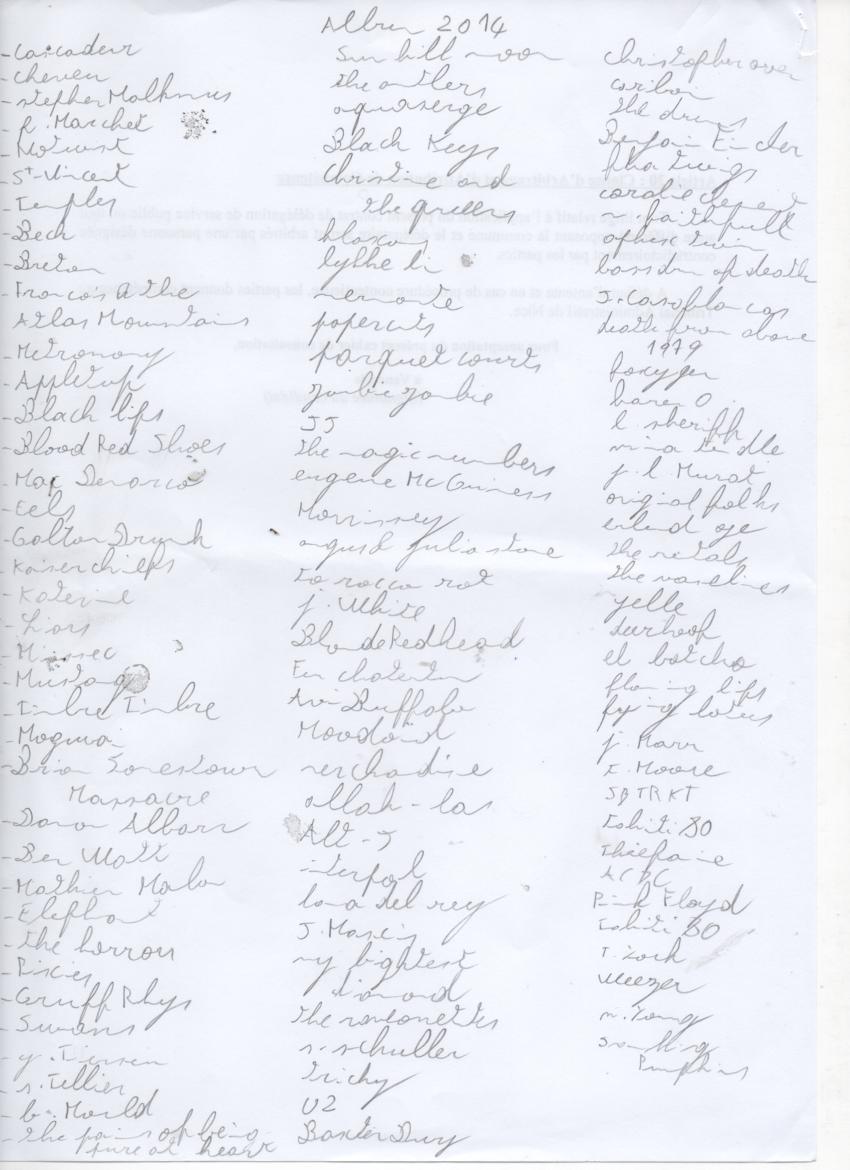 Album 2014
-Cascadeur
-cheveu
-stephen Malkmus
- f. Marchet
- Notwist
- St-Vincent
- Temples
- Beck
- Breton
- Francois & the
Atlas Mountains
- Metronomy
- Appletop
- Black lips
- Blood Red Shoes
- Mac Demarco
- Eels
- Golton Drunk
- Kaiserchiefs
- Katerine
- Liars
- Miossec
- Mustang
- Timbre Timbre
- Mogwai
- Brian Jonestown
Massacre
- Damon Albarn
- Ben Watt
- Mathieu Malon
- Elephant
- the horrors
- Pixies
- Gruff Rhys
- Swans
- y. Tiersen
- s. Tellier
- b. Mould
- the pains of being
pure at heart
Sun kill moon
the antlers
aquaserge
Black Keys
Christine and
the queens
klaxons
lykke li
remote
papercuts
parquet courts
Zombie zombie
JJ
the magic numbers
eugene McGuiness
Morrissey
angus & julia stone
to rococo rot
j. White
Blonde Redhead
Avi Buffalo
Moodoid
merchandise
allah-las
Alt-J
interpol
lana del rey
J. Mascis
my brightest
diamond
the raveonettes
s. schuller
tricky
U2
Baxter Dury
Christopher owen
caribou
the drums
Benjamin Fincher
fka twigs
m. faithfull
aphex twin
bassdrum of death
J. Casablancas
death from above
1979
foxygen
l. sheriff
mina tindle
j. l. Murat
original folks
erlend oye
the rentals
the vaselines
yelle
deerhoof
el botcho
flaming lips
flying lotus
j. Marr
T. Moore
SBTRKT
Tahiti 80
thiefaine
ACDC
Pink Floyd
Tahiti 80
weezer
n. Young
smashing
Pumpkins